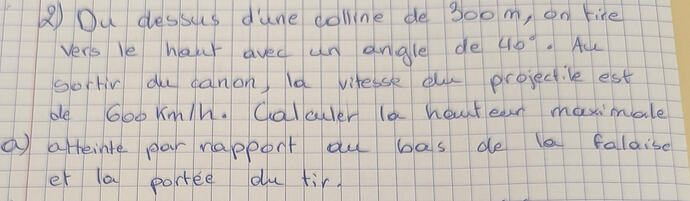 2) Du dessus d'une colline de 300 m, on tire
vers le haut avec un angle de 40°. Au
sortir du canon, la vitesse du projectile est
de 600 Km/h. Calculer la hauteur maximale
a) atteinte par rapport au bas de la falaise
et la portée du tir.